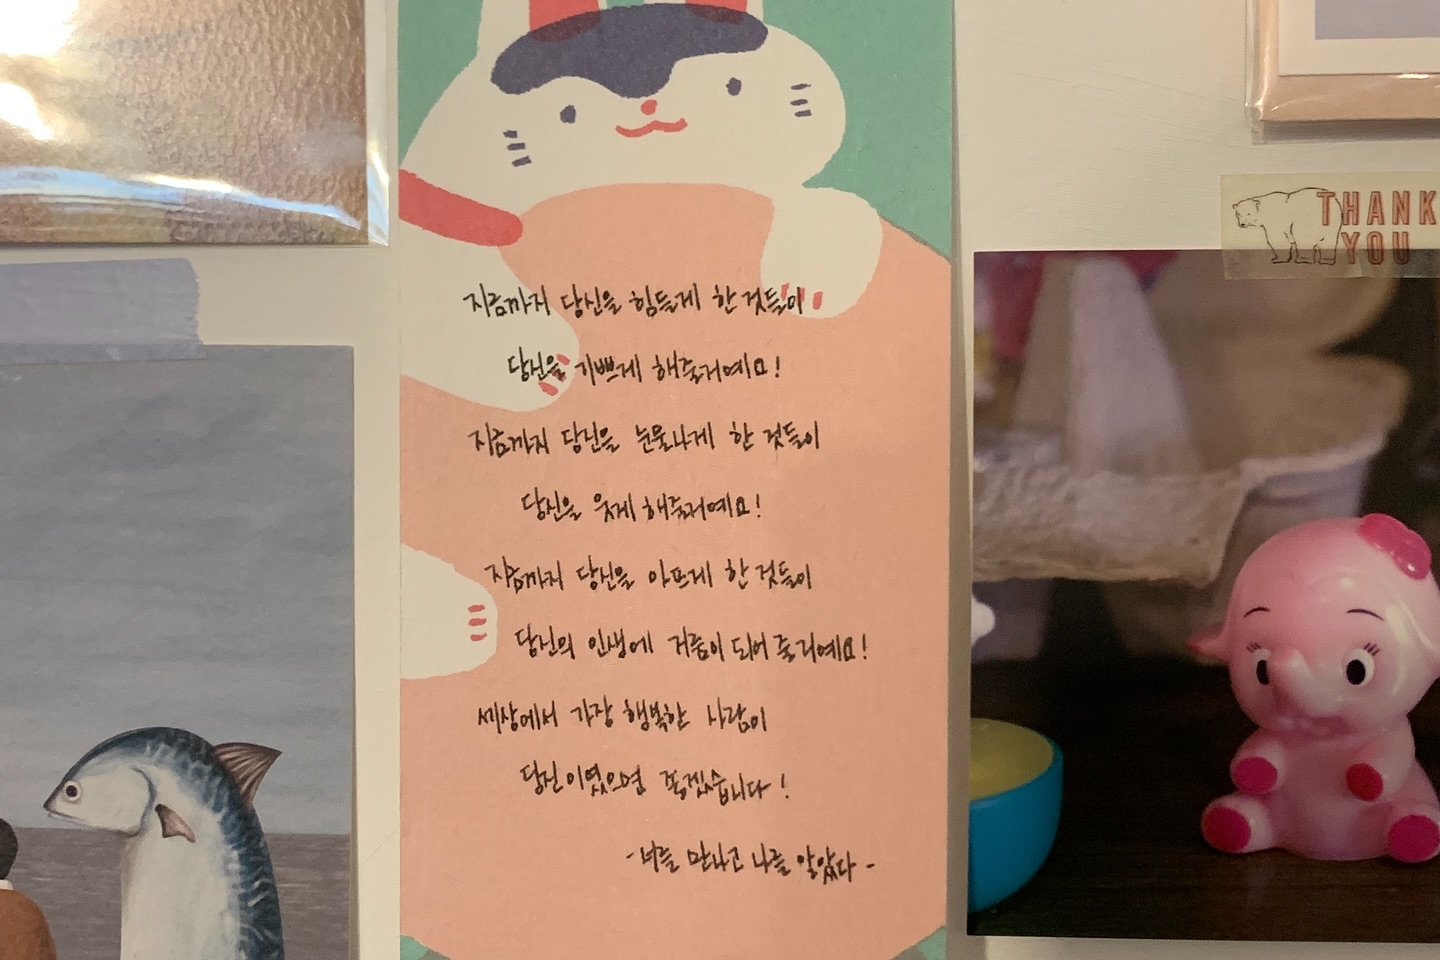 지금까지 당신을 힘들게 한 것들이
당신을 기쁘게 해줄거예요!
지금까지 당신을 눈물나게 한 것들이
당신을 웃게 해줄거예요!
지금까지 당신을 아프게 한 것들이
당신의 인생에 거름이 되어 줄거예요!
세상에서 가장 행복한 사람이
당신이였으면 좋겠습니다!
-너를 만나고 나를 알았다-
THANK
YOU